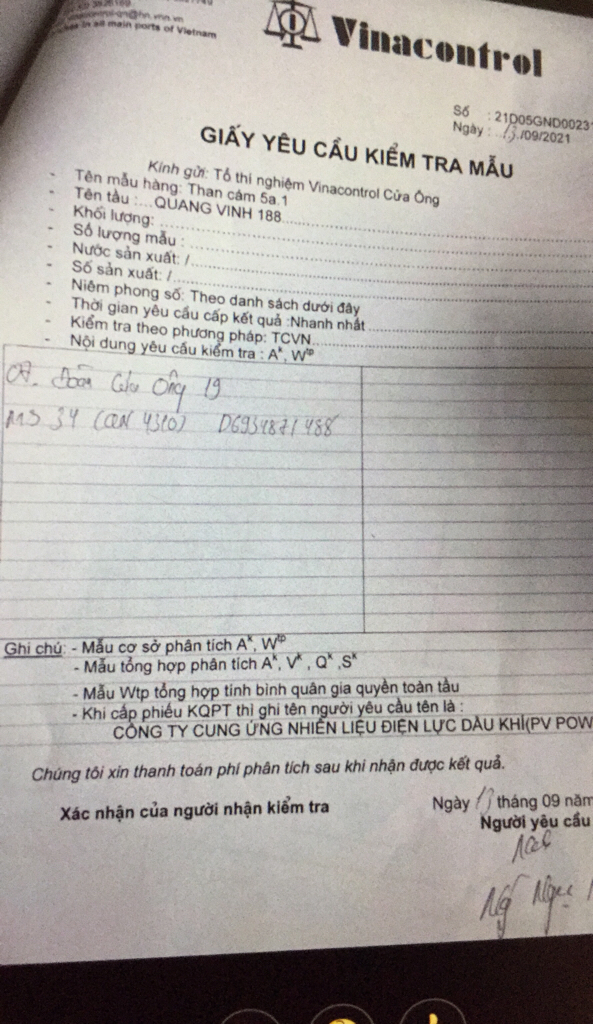 @hn.vnn.vn
in all main ports of Vietnam
Vinacontrol
Số : 21D05GND0023
Ngày : 13/09/2021
GIẤY YÊU CẦU KIỂM TRA MẪU
Kính gửi: Tổ thí nghiệm Vinacontrol Cửa Ông
- Tên mẫu hàng: Than cám 5a.1
- Tên tầu :... QUANG VINH 188
- Khối lượng:
- Số lượng mẫu :
- Nước sản xuất: /
- Số sản xuất: /
- Niêm phong số: Theo danh sách dưới đây
- Thời gian yêu cầu cấp kết quả :Nhanh nhất
- Kiểm tra theo phương pháp: TCVN
- Nội dung yêu cầu kiểm tra : Aᵏ, Wᵗᵖ
Đoàn Cửa Ông 19
MS 34 (QN 4310) D6934871488
Ghi chú: - Mẫu cơ sở phân tích Aᵏ, Wᵗᵖ
- Mẫu tổng hợp phân tích Aᵏ, Vᵏ , Qᵏ ,Sᵏ
- Mẫu Wtp tổng hợp tính bình quân gia quyền toàn tầu
- Khi cấp phiếu KQPT thì ghi tên người yêu cầu tên là :
CÔNG TY CUNG ỨNG NHIÊN LIỆU ĐIỆN LỰC DẦU KHÍ(PV POW
Chúng tôi xin thanh toán phí phân tích sau khi nhận được kết quả.
Ngày 13 tháng 09 năm
Xác nhận của người nhận kiểm tra
Người yêu cầu
Ngọc